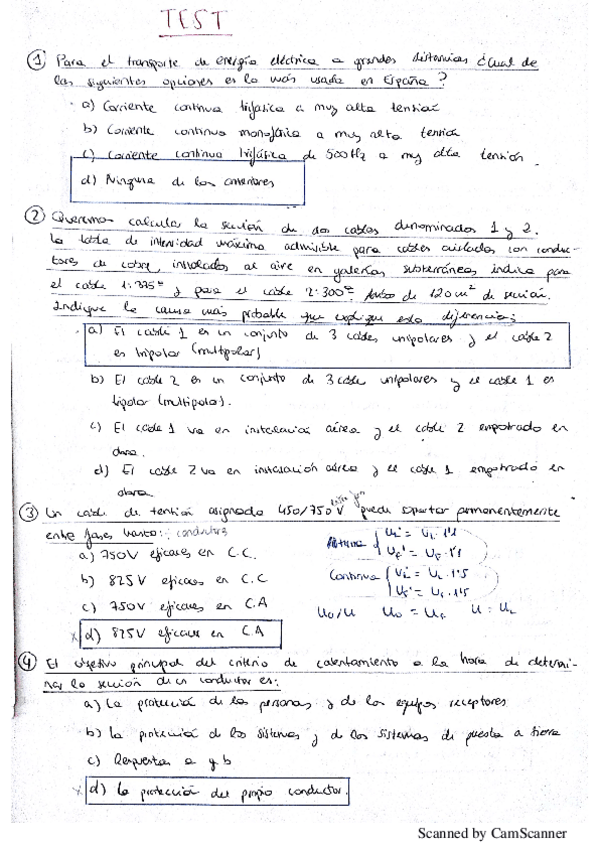 TEST
① Para el transporte de energía eléctrica a grandes distancias ¿Cual de
las siguientes opciones es la más usada en España?
a) Corriente continua trifásica a muy alta tensión
b) Corriente continua monofásica a muy alta tensión
c) Corriente continua trifásica de 500Hz a muy alta tensión.
d) Ninguna de las anteriores
② Queremos calcular la sección de dos cables denominados 1 y 2.
La tabla de intensidad máxima admisible para cables aislados con conduc-
tores de cobre, instalados al aire en galerías subterráneas indica para
el cable 1: 335 y para el cable 2: 300 de 120 m² de sección.
Indique la causa más probable que explique esta diferencia:
a) El cable 1 es un conjunto de 3 cables unipolares y el cable 2
es tripolar (multipolar)
b) El cable 2 es un conjunto de 3 cable unipolares y el cable 1 es
tripolar (multipolar).
c) El cable 1 va en instalación aérea y el cable 2 empotrado en
obra.
d) El cable 2 va en instalación aérea y el cable 1 empotrado en
obra.
③ Un cable de tensión asignada 450/750 V puede soportar permanentemente
entre fases hasta: conductores
a) 750V eficaces en C.C.
b) 825 V eficaces en C.C
c) 750V eficaces en C.A
x d) 825V eficaces en C.A
Alterna { UL' = UL · 1'1
UF' = UF · 1'1
Continua { UL' = UL · 1'5
UF' = UF · 1'5
U0/U U0 = UF U = UL
④ El objetivo principal del criterio de calentamiento a la hora de determi-
nar la sección de un conductor es:
a) La protección de las personas y de los equipos receptores
b) la protección de los sistemas y de los sistemas de puesta a tierra
c) Respuestas a y b
x d) La protección del propio conductor.
Scanned by CamScanner